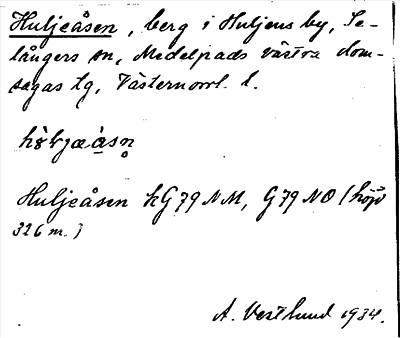 Huljeåsen, berg i Huljens by, Se-
långers sn, Medelpads västra dom-
sagas tg, Västernorrl. l.
Huljeåsen kG79NM, G79NO (höjd
326 m.)
A. Vestlund 1934.